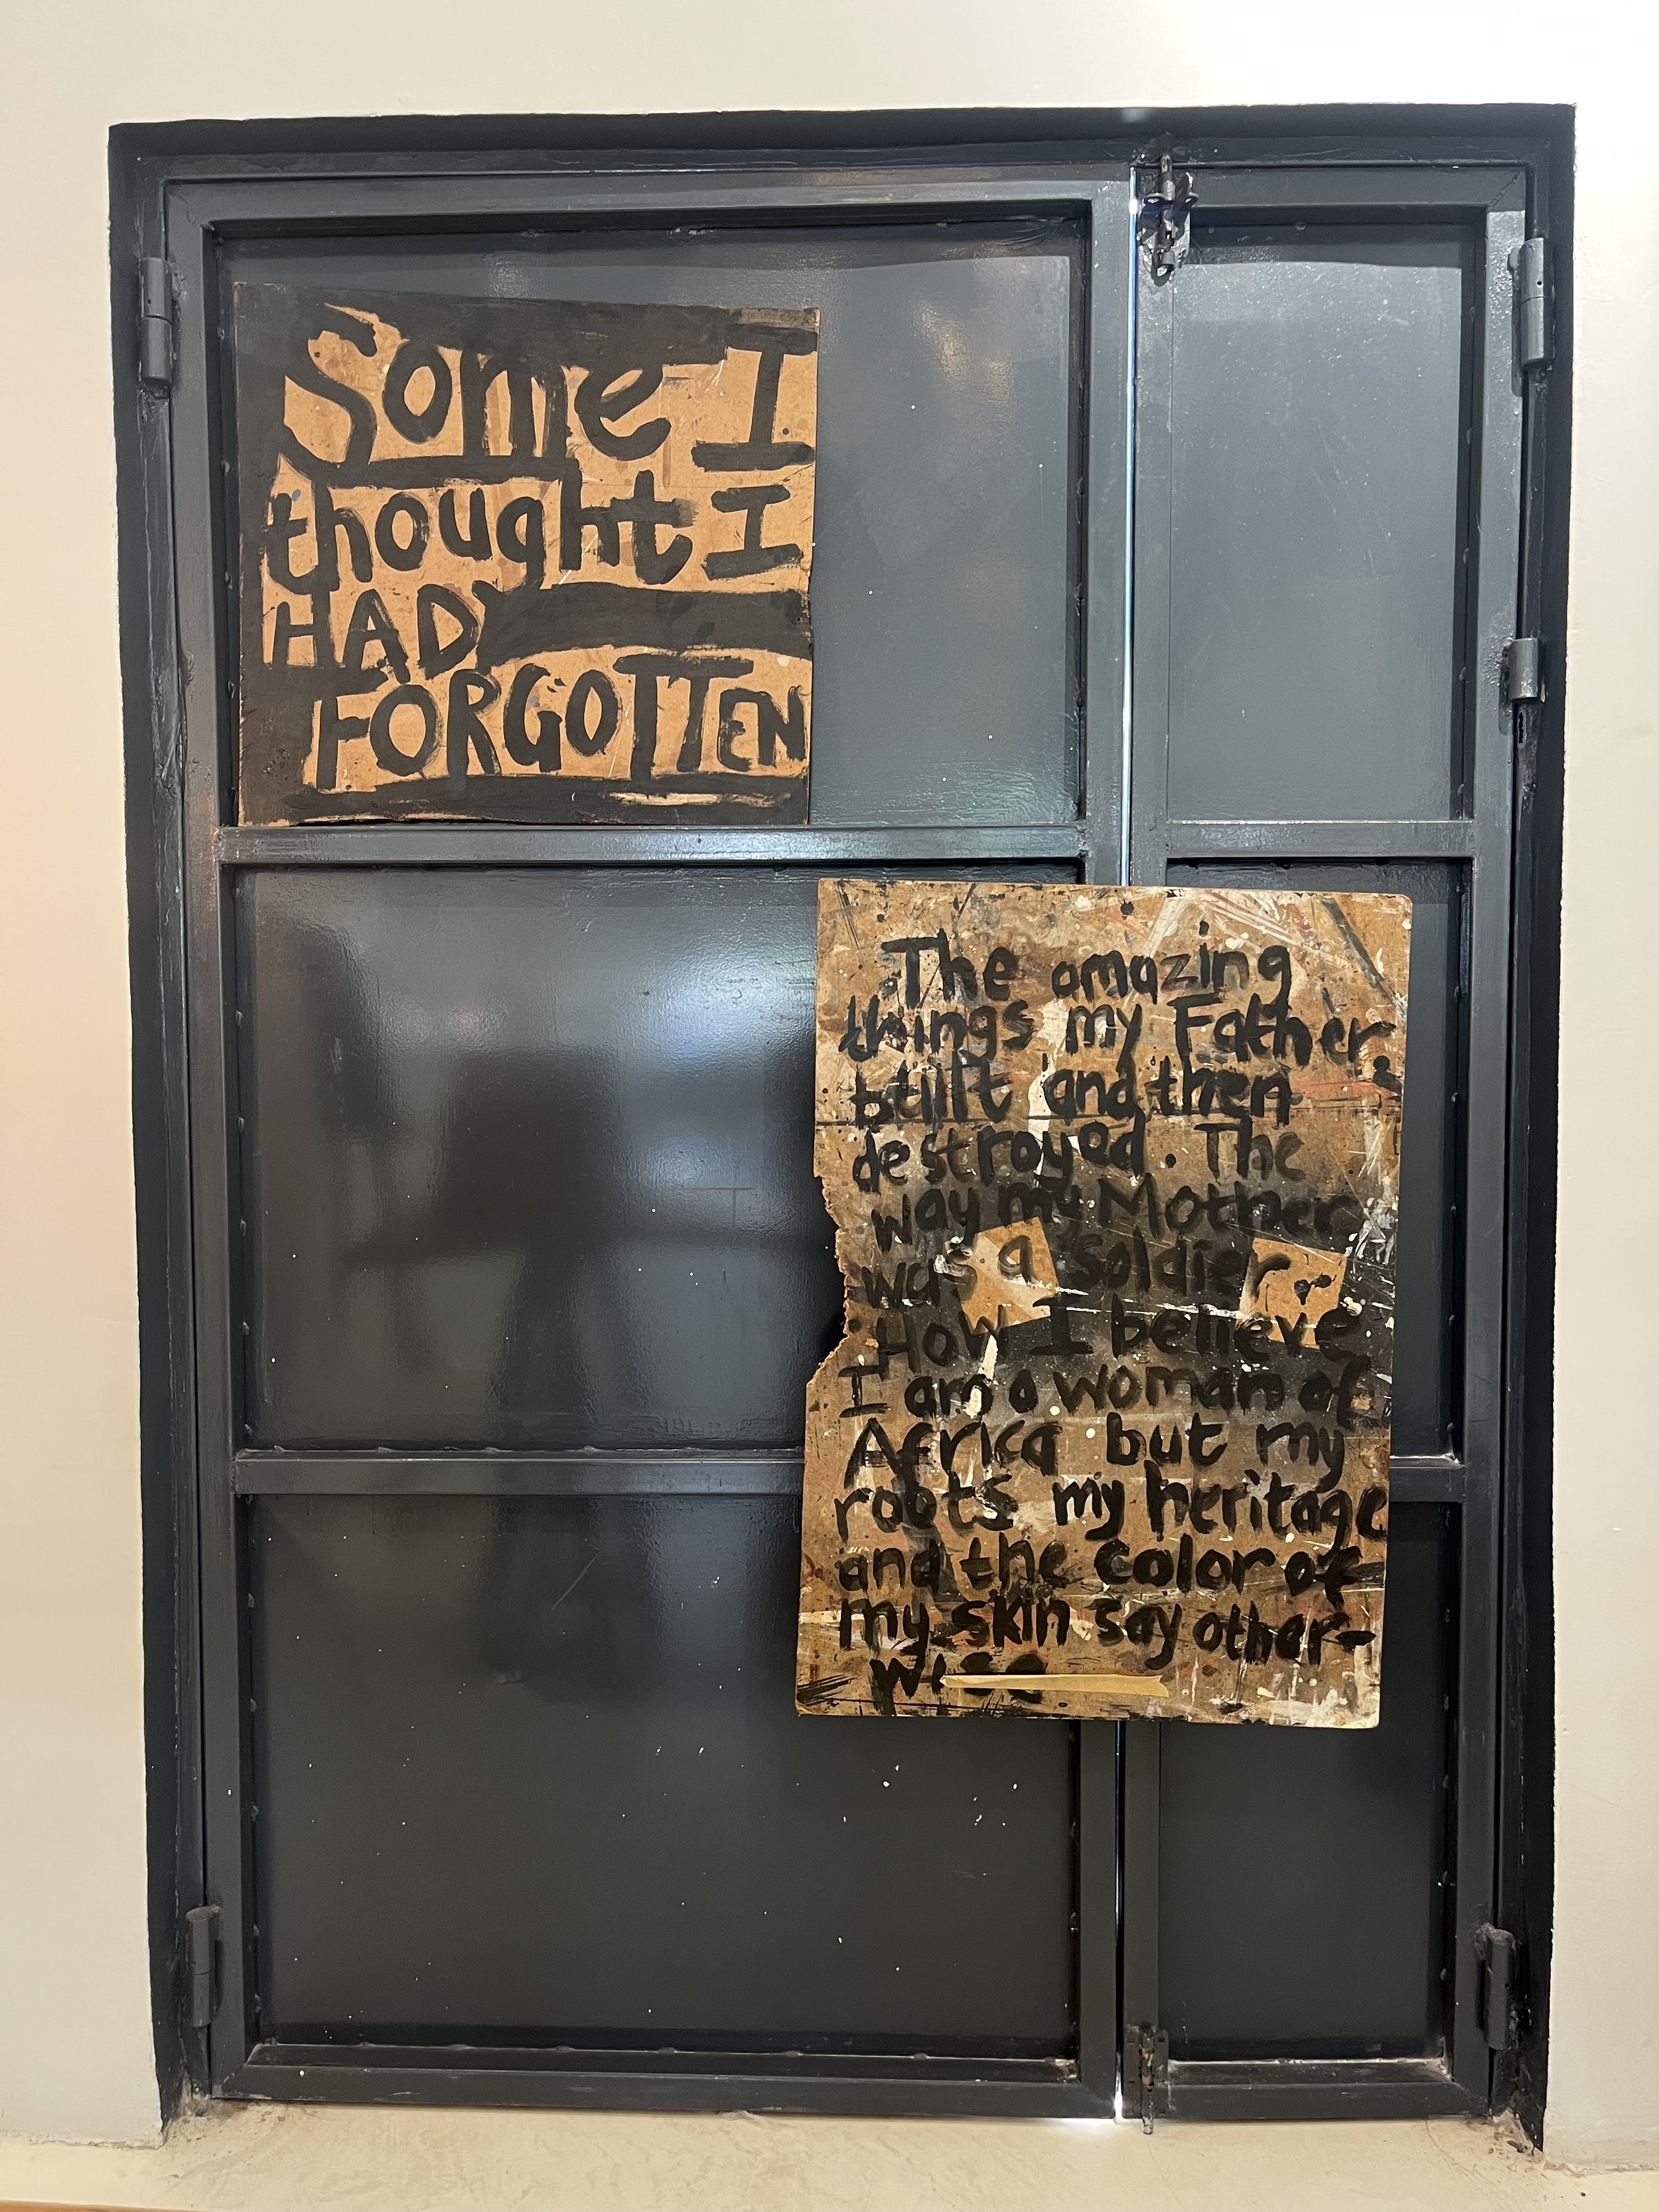 Some I
thought I
HAD
FORGOTTEN
The amazing
things my Father
built and then
destroyed. The
way my Mother
was a soldier.
How I believe
I am a woman of
Africa but my
roots my heritage
and the color of
my skin say other-
wise